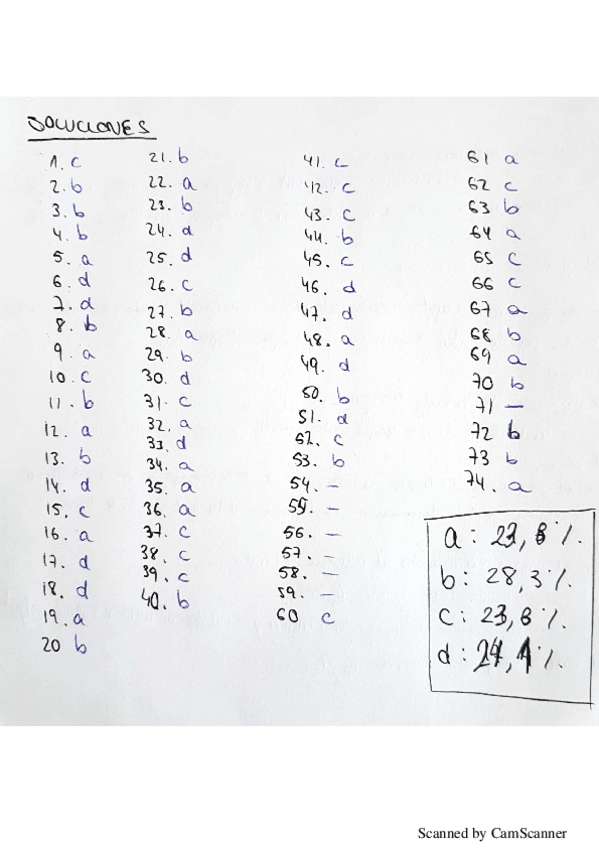 SOLUCIONES
1. c
2. b
3. b
4. b
5. a
6. d
7. d
8. b
9. a
10. c
11. b
12. a
13. b
14. d
15. c
16. a
17. d
18. d
19. a
20 b
21. b
22. a
23. b
24. d
25. d
26. c
27. b
28. a
29. b
30. d
31. c
32. a
33. d
34. a
35. a
36. a
37. c
38. c
39. c
40. b
41. c
42. c
43. c
44. b
45. c
46. d
47. d
48. a
49. d
50. b
51. d
52. c
53. b
54. -
55. -
56. -
57. -
58. -
59. -
60 c
61 a
62 c
63 b
64 a
65 c
66 c
67 a
68 b
69 a
70 b
71 -
72 b
73 b
74. a
a:
b: 28,3%.
c:
d:
Scanned by CamScanner